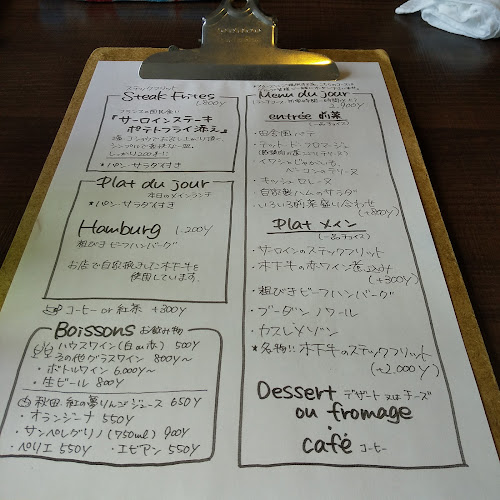 ステックフリット
Steak Frites
1,800Y
フランスの国民食!!
『サーロインステーキ
ポテトフライ添え』
シンプルで
しっかり200g!!
*パン・サラダ付き
Plat du jour
本日のメインランチ
*パン・サラダ付き
Hamburg 1,200Y
粗びきビーフハンバーグ
お店で自家挽きした木下牛を
使用しています。
コーヒー or 紅茶 +300Y
Boissons お飲み物
ハウスワイン(白 ou 赤) 500Y
その他グラスワイン 800Y~
・ボトルワイン 6,000Y~
・生ビール 800Y
秋田・紅の夢りんごジュース 650Y
・オランジーナ 550Y
・サンペレグリノ(750ml) 900Y
・ペリエ 550Y ・エビアン 550Y
Menu du jour
entrée 前菜
(一品チョイス)
・田舎風パテ
・テット・ド・フロマージュ
・イワシとじゃがいも、
ベーコンのテリーヌ
・キッシュロレーヌ
・自家製ハムのサラダ
・いろいろ前菜盛り合わせ
(+800Y)
Plat メイン
(一品チョイス)
・サーロインのステックフリット
・木下牛の赤ワイン煮込み
(+300Y)
・粗びきビーフハンバーグ
・ブーダンノワール
・カスレメゾン
★名物!! 木下牛のステックフリット
(+2,000Y)
Dessert デザート 又は チーズ
ou fromage
・
café コーヒー